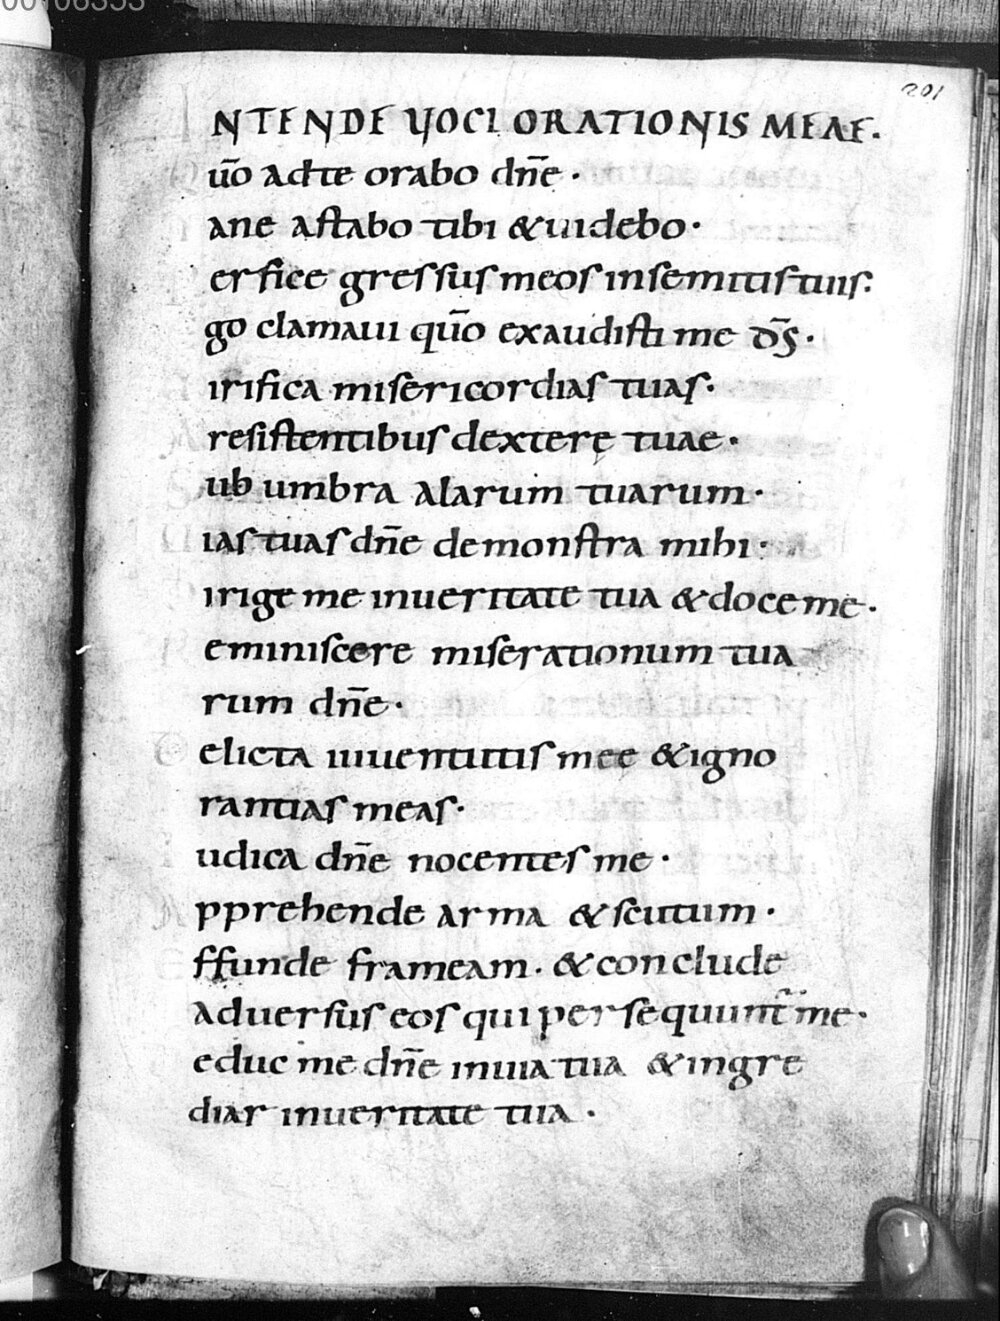 00106353
201
INTENDE VOCI ORATIONIS MEAE.
ūo adte orabo dn̄e.
ane astabo tibi & uidebo.
erfice gressus meos insemitis tuis:
go clamaui qūo exaudisti me d̄s.
irifica misericordias tuas.
resistentibus dexterę tuae.
ub umbra alarum tuarum.
ias tuas dn̄e demonstra mihi.
irige me inueritate tua & doce me.
eminiscere miserationum tua
rum dn̄e.
elicta iuuentutis mee & igno
rantias meas.
udica dn̄e nocentes me.
pprehende arma & scutum.
ffunde frameam. & conclude
aduersus eos qui persequunt̃ me.
educ me dn̄e inuia tua & ingre
diar inueritate tua.